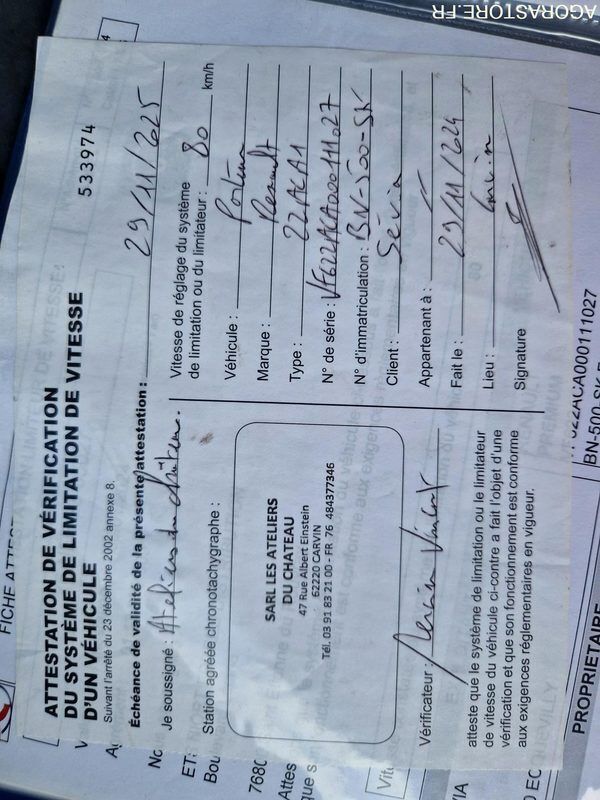 AGORASTORE.FR
ATTESTATION DE VÉRIFICATION
DU SYSTÈME DE LIMITATION DE VITESSE
D'UN VÉHICULE
533974
Suivant l'arrêté du 23 décembre 2002 annexe 8.
Échéance de validité de la présente attestation : 29/11/2025
Je soussigné : Ateliers du château.
Station agréée chronotachygraphe :
SARL LES ATELIERS
DU CHATEAU
47 Rue Albert Einstein
62220 CARVIN
Tél. 03 91 83 21 00 - FR 76 484377346
Vérificateur : Vincent
atteste que le système de limitation ou le limitateur
de vitesse du véhicule ci-contre a fait l'objet d'une
vérification et que son fonctionnement est conforme
aux exigences réglementaires en vigueur.
Vitesse de réglage du système
de limitation ou du limitateur : 80 km/h
Véhicule : Porteur
Marque : Renault
Type : 22ACA1
N° de série : VF622ACA000111027
N° d'immatriculation : BN-500-SK
Client : Sévia
Appartenant à : "
Fait le : 29/11/2024
Lieu : Carvin
Signature
FICHE ATTE
ET
Bou
7680
Attes
que s
PROPRIETAIRE
622ACA000111027
BN-500-SK